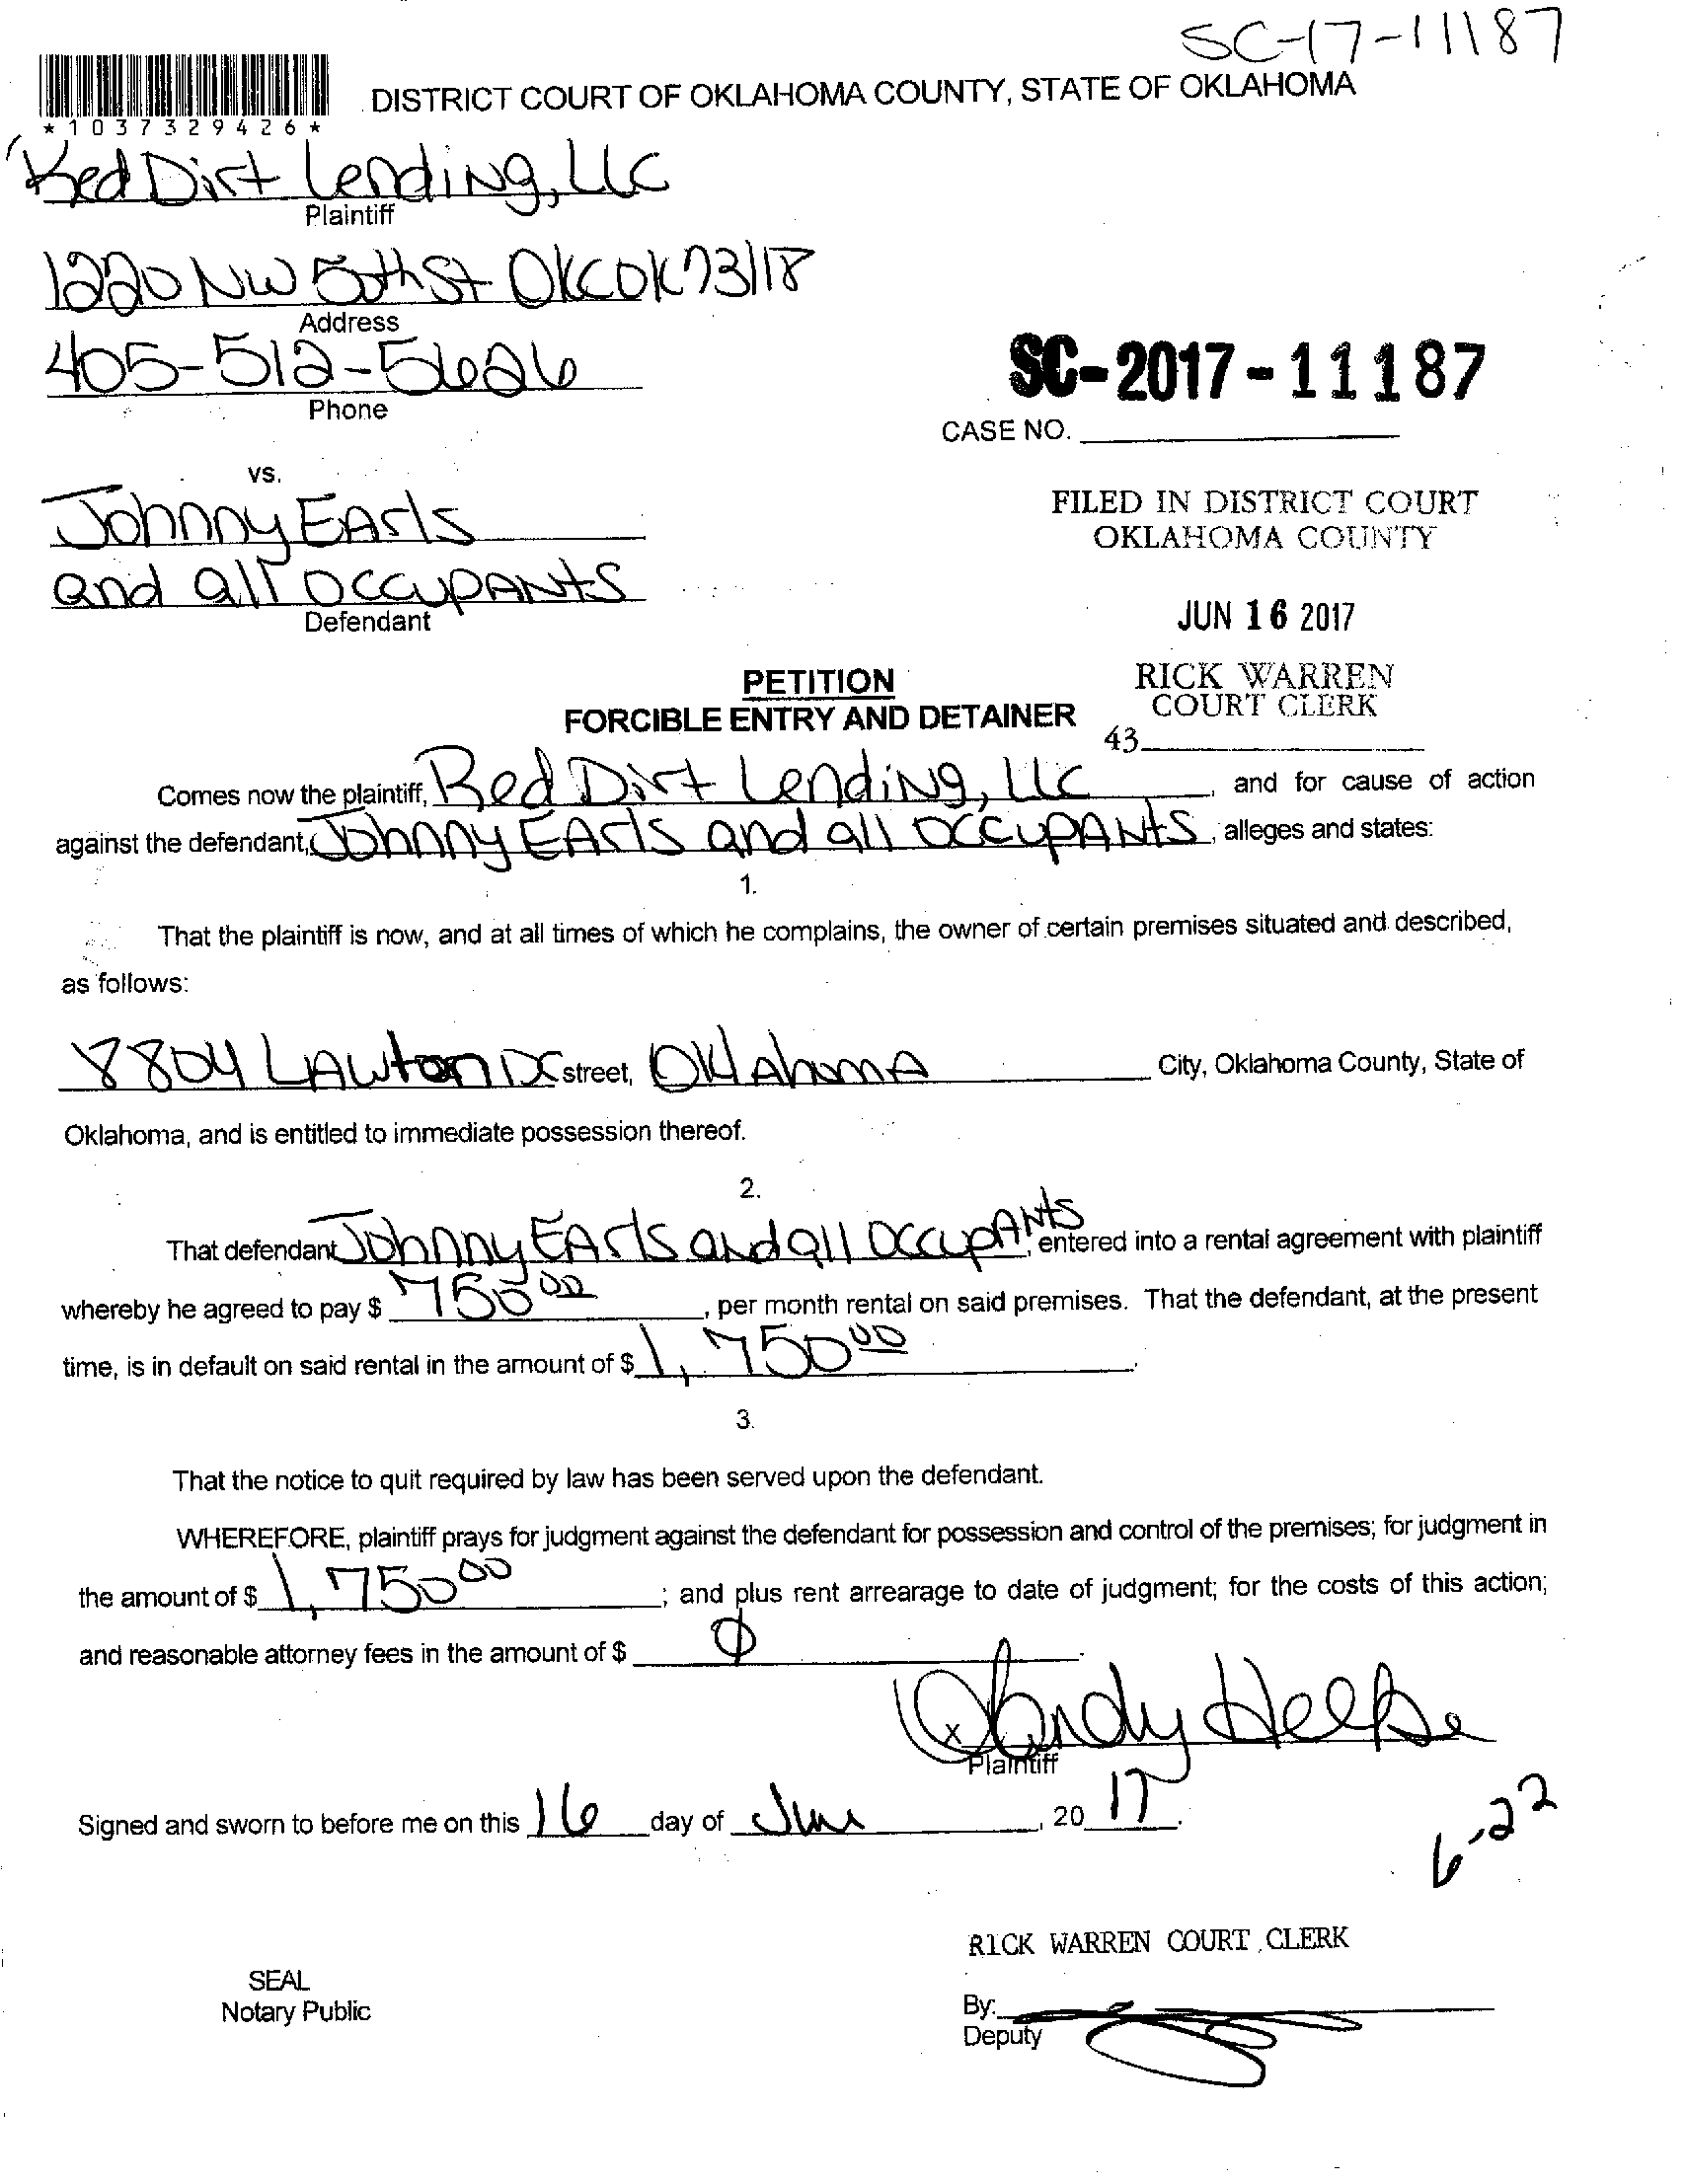 SC-17-11187
*1037329426*
DISTRICT COURT OF OKLAHOMA COUNTY, STATE OF OKLAHOMA
Red Dirt Lending, LLC
Plaintiff
1220 NW 50th St OKC OK 73118
Address
405-512-5626
Phone
SC-2017-11187
CASE NO.
vs.
Johnny EArls
and all OccupANts
Defendant
FILED IN DISTRICT COURT
OKLAHOMA COUNTY
JUN 16 2017
RICK WARREN
COURT CLERK
43
PETITION
FORCIBLE ENTRY AND DETAINER
Comes now the plaintiff, Red Dirt Lending, LLC, and for cause of action
against the defendant, Johnny EArls and all OccupANts, alleges and states:
1.
That the plaintiff is now, and at all times of which he complains, the owner of certain premises situated and described,
as follows:
8804 LAwton Dr street, OklAhomA City, Oklahoma County, State of
Oklahoma, and is entitled to immediate possession thereof.
2.
That defendant Johnny EArls and all OccupANts, entered into a rental agreement with plaintiff
whereby he agreed to pay $ 750 00, per month rental on said premises. That the defendant, at the present
time, is in default on said rental in the amount of $ 1,750 00.
3.
That the notice to quit required by law has been served upon the defendant.
WHEREFORE, plaintiff prays for judgment against the defendant for possession and control of the premises; for judgment in
the amount of $ 1,750 00; and plus rent arrearage to date of judgment; for the costs of this action;
and reasonable attorney fees in the amount of $ 0
x
Plaintiff
Signed and sworn to before me on this 16 day of June, 20 17.
6-22
RICK WARREN COURT CLERK
SEAL
Notary Public
By:
Deputy